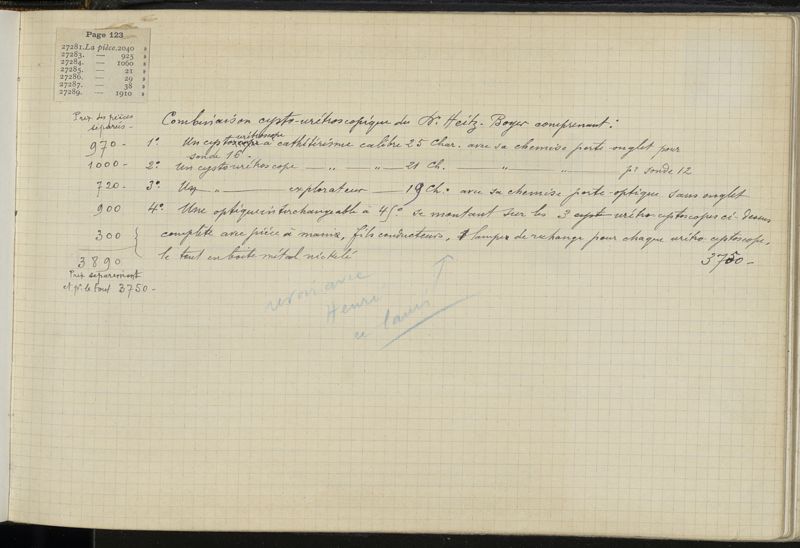 Page 123
27281. La pièce. 2040 »
27283. — 925 »
27284. — 1060 »
27285. — 21 »
27286. — 29 »
27287. — 38 »
27289. — 1910 »
Prix des pièces
séparées -
Combinaison cysto-urétroscopique du Dr. Heitz-Boyer comprenant:
970 - 1° Un cysto urétroscope à cathétérisme calibre 25 Char. avec sa chemise porte onglet pour
sonde 16 -
1000 - 2° Un cysto urétroscope — „ — „ — 21 Ch. — „ — „ — pr sonde 12
720 - 3° Un — „ — explorateur — 19 Ch. avec sa chemise porte-optique sans onglet
900 4° Une optique interchangeable à 45° se montant sur les 3 urétro-cystoscopes ci-dessus
300 complète avec pièce à mains, fils conducteurs, lampes de rechange pour chaque urétro cystoscope,
3890 le tout en boite métal nickelé 3750 -
Prix séparément
et pr. le tout 3750 -
revoir avec
Henri